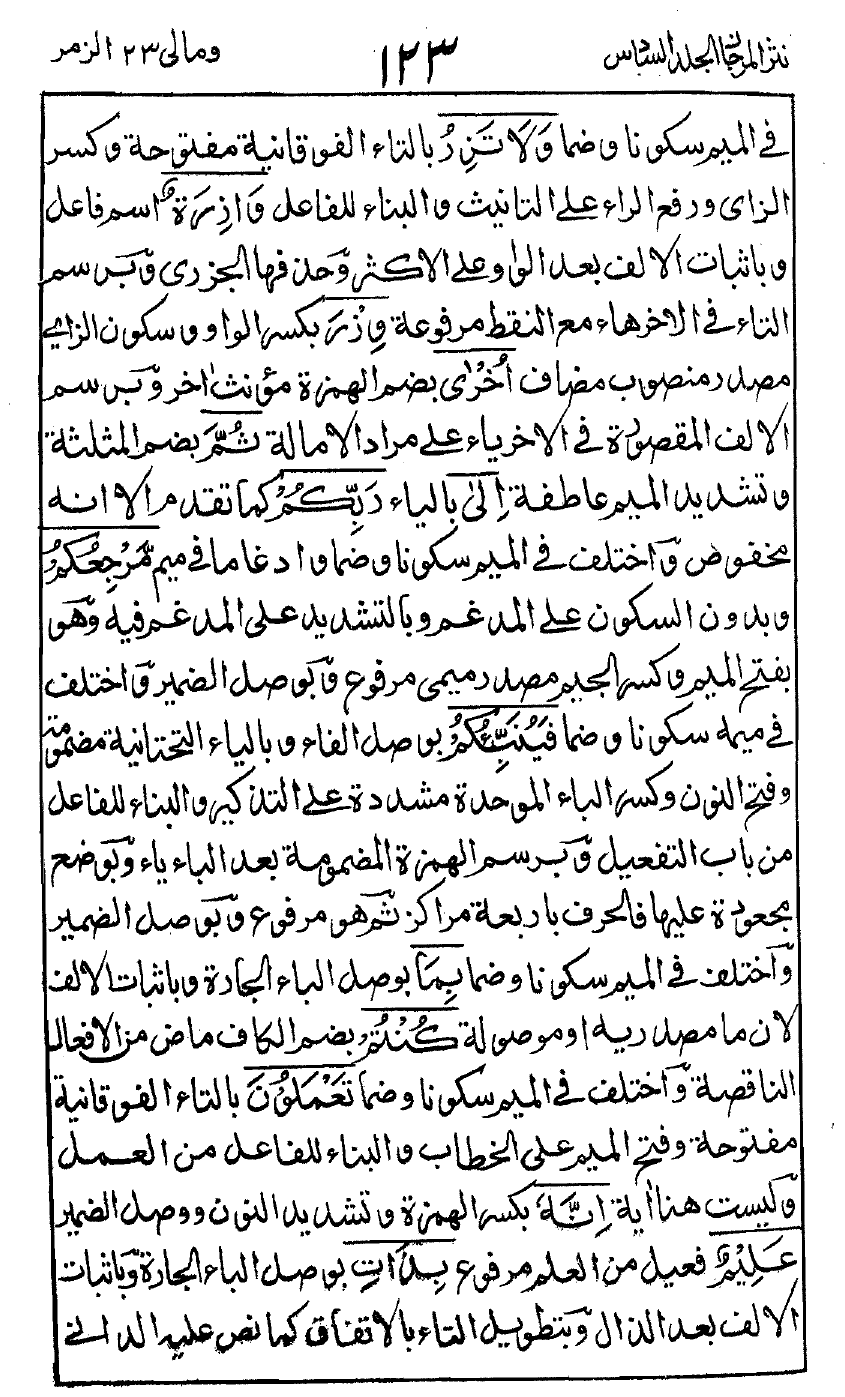 نثر المرجان الجلد السادس ١٢٣ ومالى ٢٣ الزمر
فى الميم سكونا وضما وَلَا تَزِرُ بالتاء الفوقانية مفتوحة وكسر
الزاى ورفع الراء على التانيث والبناء للفاعل وَازِرَةٌ اسم فاعل
وباثبات الالف بعد الواو على الاكثر وحذفها الجزرى وبرسم
التاء فى الاخرهاء مع النقط مرفوعة وِزْرَ بكسر الواو وسكون الزاى
مصدر منصوب مضاف اُخْرٰى بضم الهمزة مؤنث اخر وبرسم
الالف المقصورة فى الاخرياء على مراد الامالة ثُمَّ بضم المثلثة
وتشديد الميم عاطفة اِلىٰ بالياء رَبِّكُمْ كما تقدم الا انه
مخفوض واختلف فى الميم سكونا وضما وادغاما فى ميم مَّرْجِعُكُمْ
وبدون السكون على المدغم وبالتشديد على المدغم فيه وهو
بفتح الميم وكسر الجيم مصدر ميمى مرفوع وبوصل الضمير واختلف
فى ميمه سكونا وضما فَيُنَبِّئُكُمْ بوصل الفاء وبالياء التحتانية مضمومة
وفتح النون وكسر الباء الموحدة مشددة على التذكير والبناء للفاعل
من باب التفعيل وبرسم الهمزة المضمومة بعد الباء ياء وبوضع
مجعودة عليها فالحرف باربعة مراكز ثم هو مرفوع وبوصل الضمير
واختلف فى الميم سكونا وضما بِمَا بوصل الباء الجارة وباثبات الالف
لان ما مصدرية او موصولة كُنْتُمْ بضم الكاف ماض من الافعال
الناقصة واختلف فى الميم سكونا وضما تَعْمَلُوْنَ بالتاء الفوقانية
مفتوحة وفتح الميم على الخطاب والبناء للفاعل من العمل
وليست هنا اٰية اِنَّهٗ بكسر الهمزة وتشديد النون ووصل الضمير
عَلِيْمٌ فعيل من العلم مرفوع بِذَاتِ بوصل الباء الجارة وباثبات
الالف بعد الذال وبتطويل التاء بالاتفاق كما نص عليه الدانى